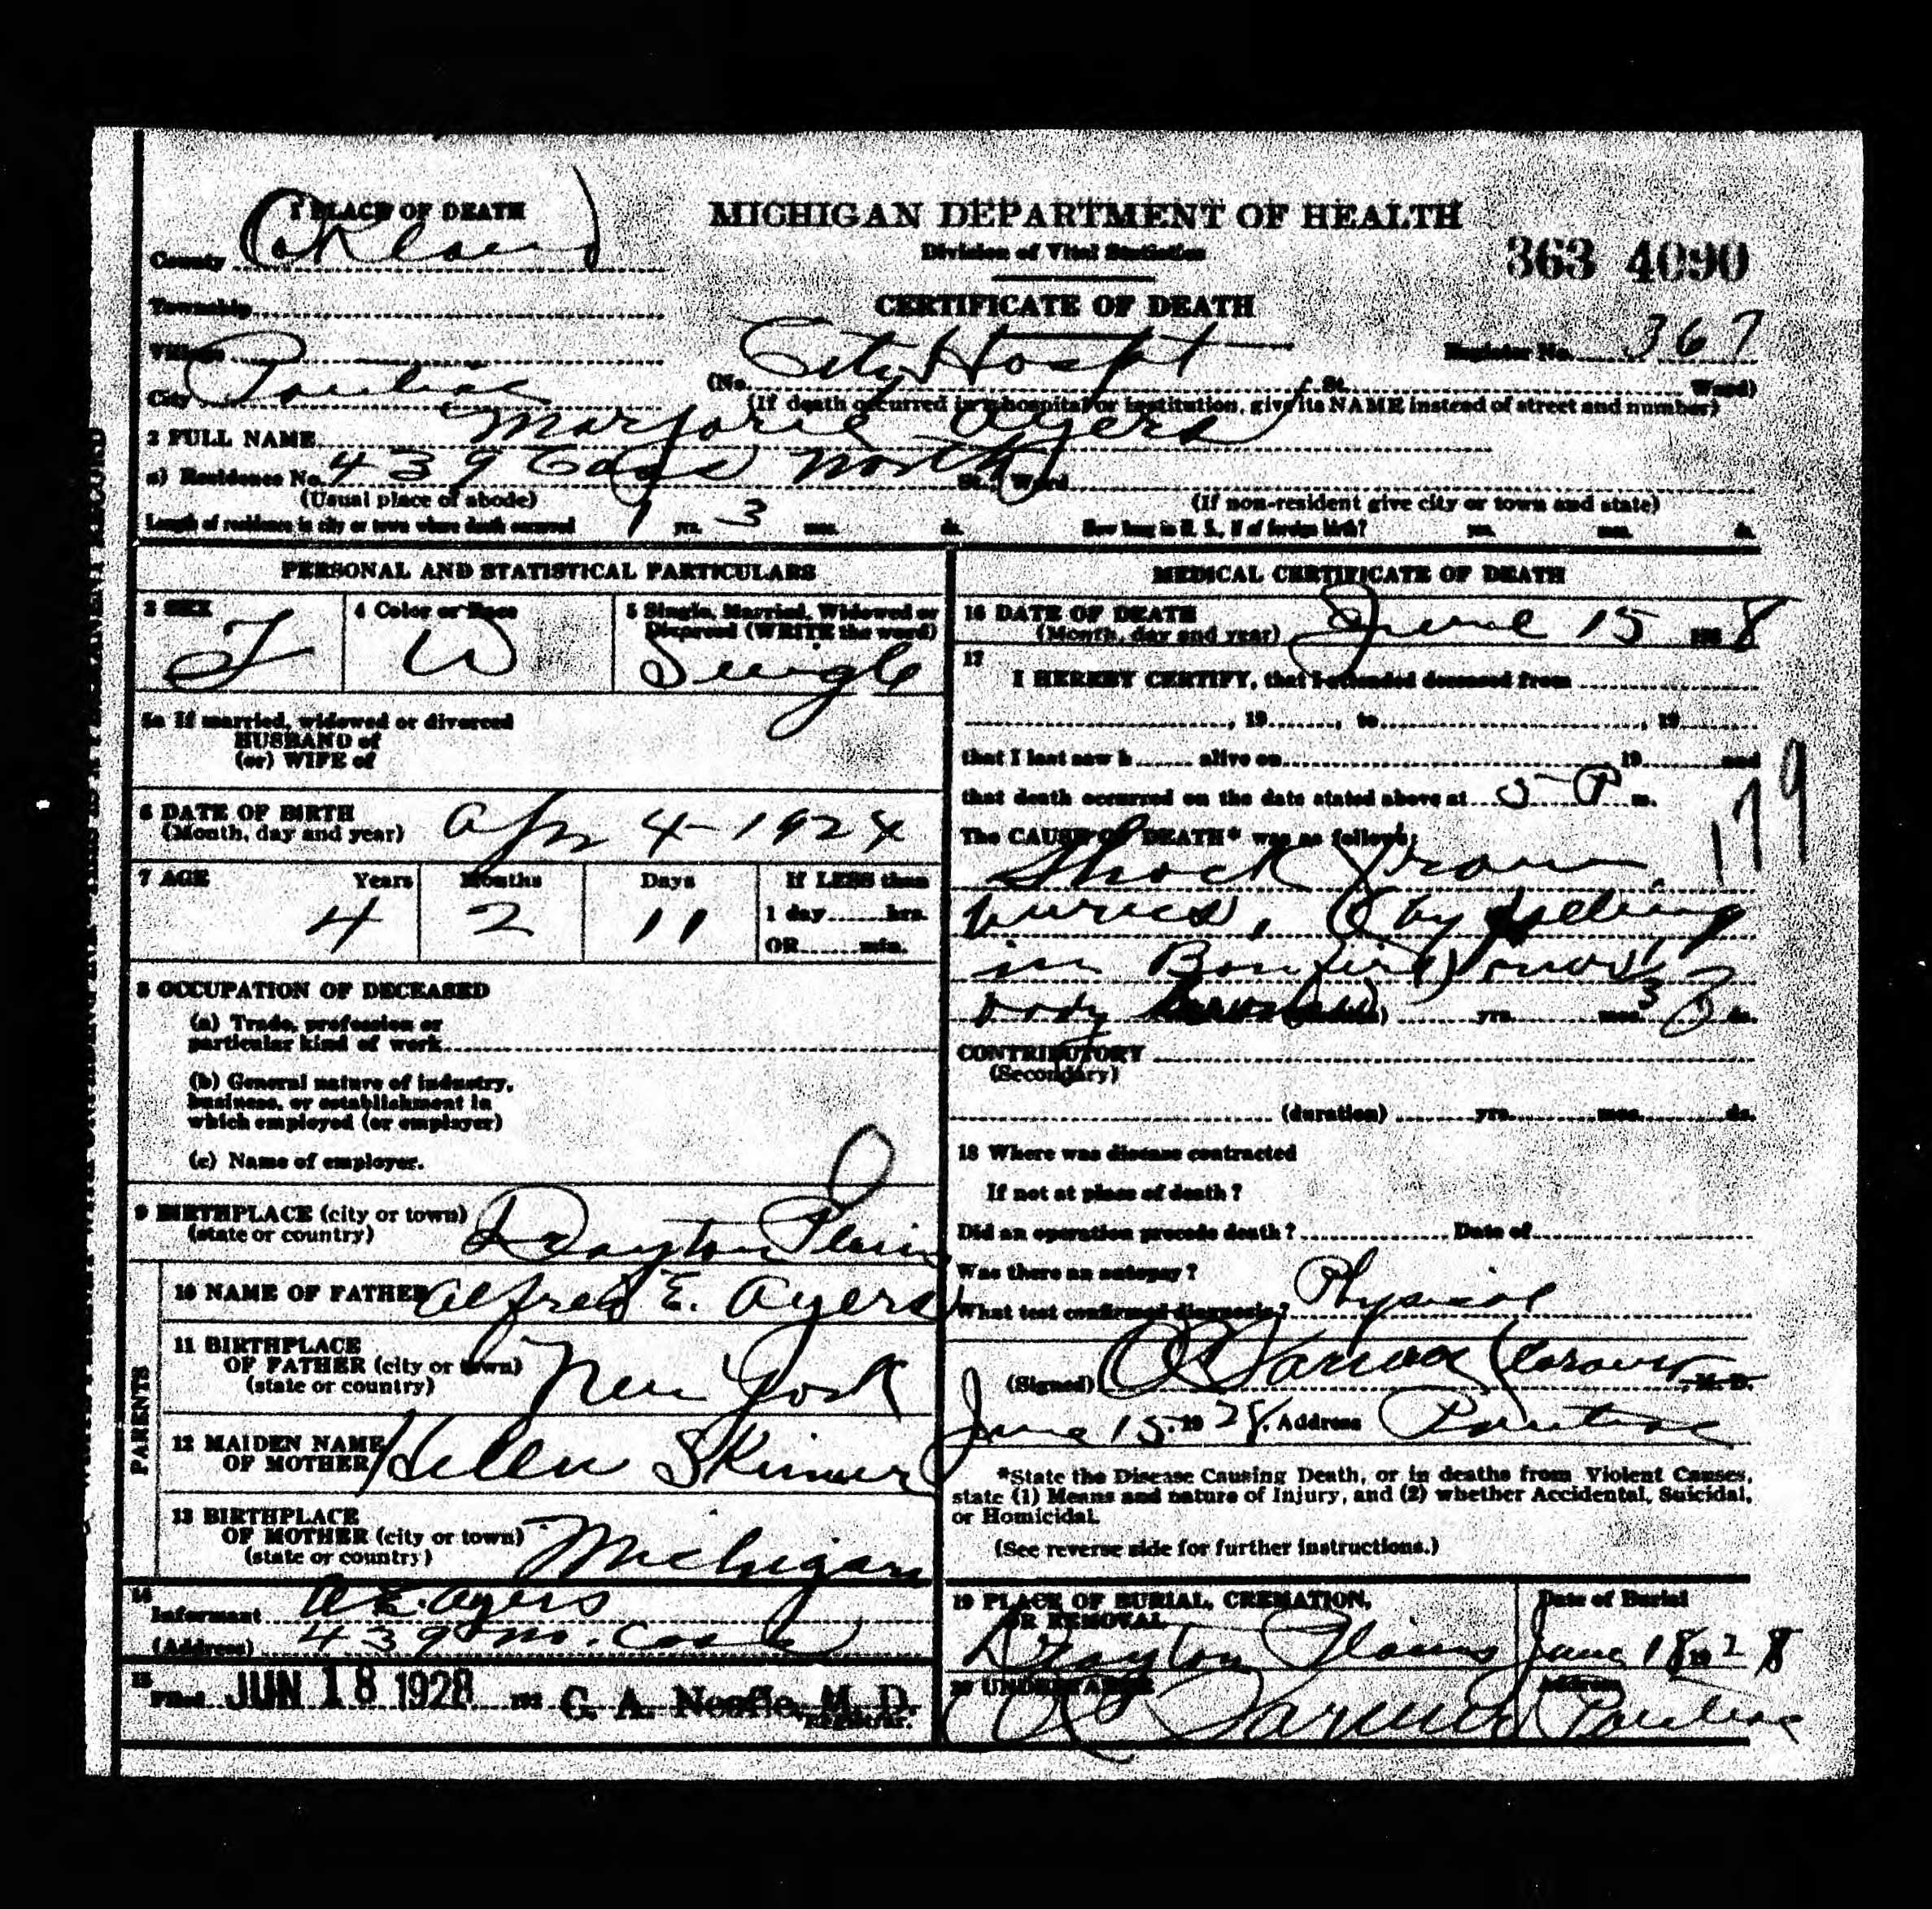 1 PLACE OF DEATH
MICHIGAN DEPARTMENT OF HEALTH
Division of Vital Statistics
County Oakland
363 4090
Township
CERTIFICATE OF DEATH
Village
Register No. 367
City Pontiac (No. City Hospt St. Ward)
(If death occurred in a hospital or institution, give its NAME instead of street and number)
2 FULL NAME Marjorie Ayers
a) Residence No. 439 Cass North St., Ward
(Usual place of abode) (If non-resident give city or town and state)
Length of residence in city or town where death occurred 1 yrs. 3 mos. ds. How long in U. S., if of foreign birth? yrs. mos. ds.
PERSONAL AND STATISTICAL PARTICULARS
3 SEX F
4 Color or Race W
5 Single, Married, Widowed or
Divorced (WRITE the word)
Single
5a If married, widowed or divorced
HUSBAND of
(or) WIFE of
6 DATE OF BIRTH
(Month, day and year) Apr 4-1924
7 AGE Years Months Days If LESS than
4 2 11 1 day hrs.
OR min.
8 OCCUPATION OF DECEASED
(a) Trade, profession or
particular kind of work
(b) General nature of industry,
business, or establishment in
which employed (or employer)
(c) Name of employer.
9 BIRTHPLACE (city or town)
(state or country) Drayton Plains
PARENTS
10 NAME OF FATHER Alfred E. Ayers
11 BIRTHPLACE
OF FATHER (city or town)
(state or country) New York
12 MAIDEN NAME
OF MOTHER Helen Skinner
13 BIRTHPLACE
OF MOTHER (city or town)
(state or country) Michigan
14
Informant A E. Ayers
(Address) 439 N. Cass
15
Filed JUN 18 1928 192 C. A. Neafie, M. D.
Registrar.
MEDICAL CERTIFICATE OF DEATH
16 DATE OF DEATH
(Month, day and year) June 15 192 8
17
I HEREBY CERTIFY, that I attended deceased from
, 19 , to , 19
that I last saw h alive on 19 and
that death occurred on the date stated above at 5 P m.
179
The CAUSE OF DEATH* was as follows:
Shock from
burns, (by falling
in Bonfire)
body yrs. mos. 3 ds.
CONTRIBUTORY
(Secondary)
(duration) yrs. mos. ds.
18 Where was disease contracted
If not at place of death?
Did an operation precede death? Date of
Was there an autopsy?
What test confirmed diagnosis? Physical
(Signed) Farmer Coroner, M. D.
June 15, 19 28. Address Pontiac
*State the Disease Causing Death, or in deaths from Violent Causes,
state (1) Means and nature of Injury, and (2) whether Accidental, Suicidal,
or Homicidal.
(See reverse side for further instructions.)
19 PLACE OF BURIAL, CREMATION,
OR REMOVAL
Drayton Plains
Date of Burial
June 18 19 28
20 UNDERTAKER
Farmer
Address
Pontiac